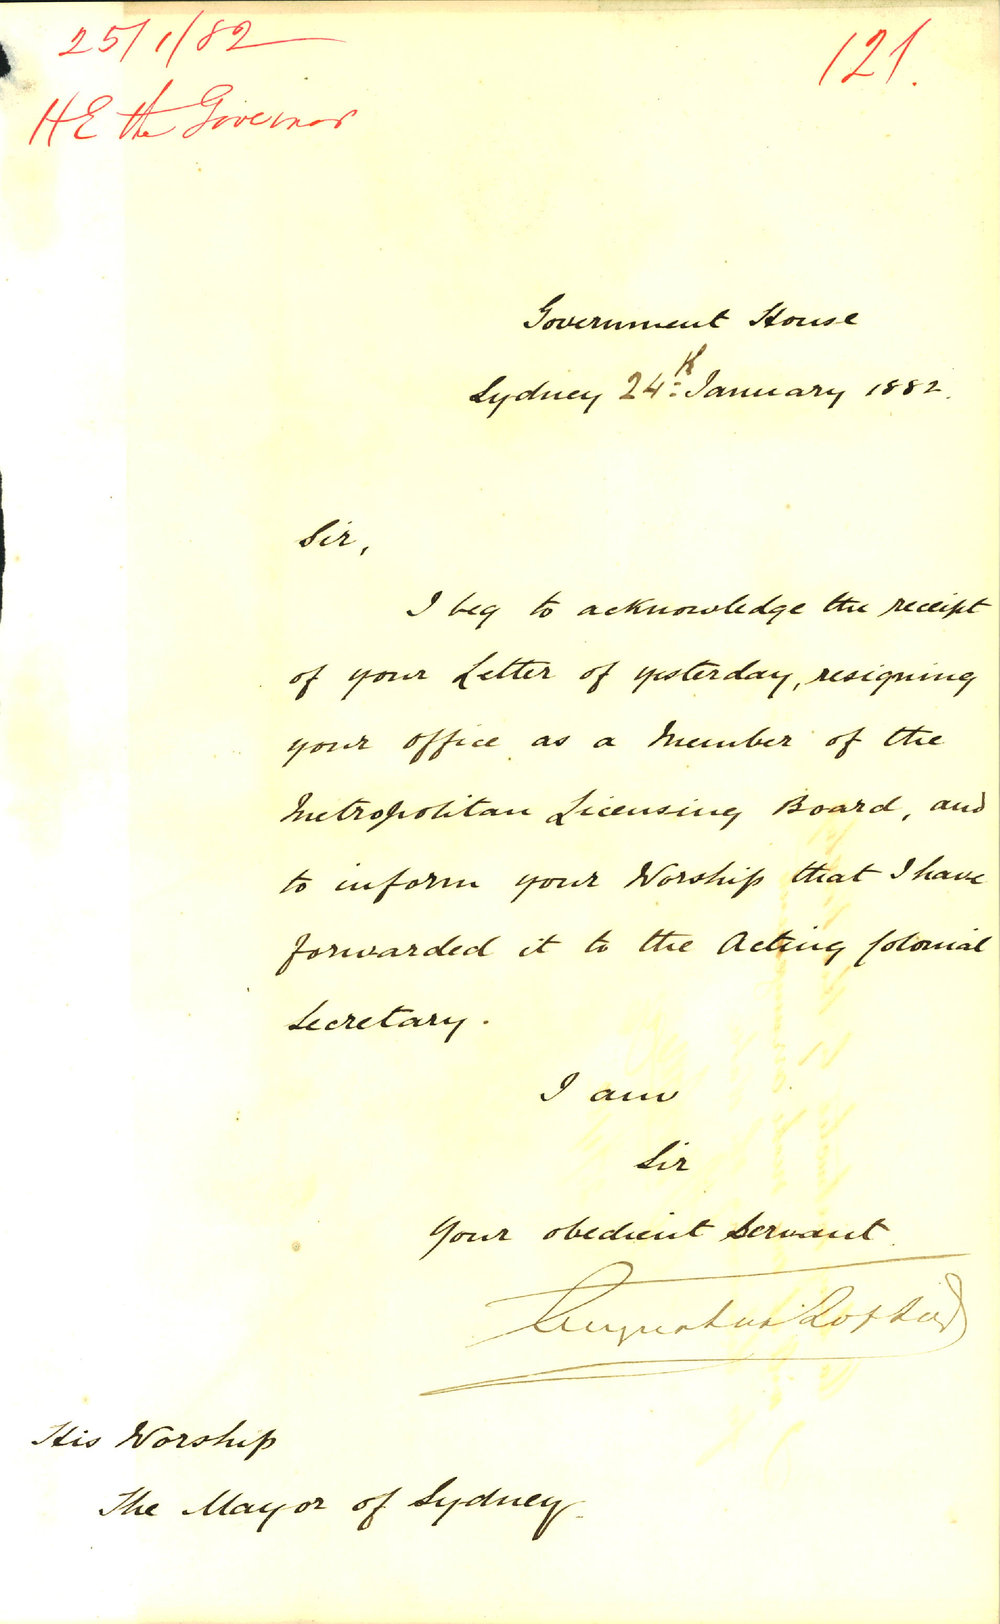 25/1/82
121.
H E the Governor
Government House
Sydney 24th January 1882.
Sir,
I beg to acknowledge the receipt
of your Letter of yesterday, resigning
your office as a Member of the
Metropolitan Licensing Board, and
to inform your Worship that I have
forwarded it to the Acting Colonial
Secretary.
I am
Sir
Your obedient Servant
Augustus Loftus
His Worship
The Mayor of Sydney.